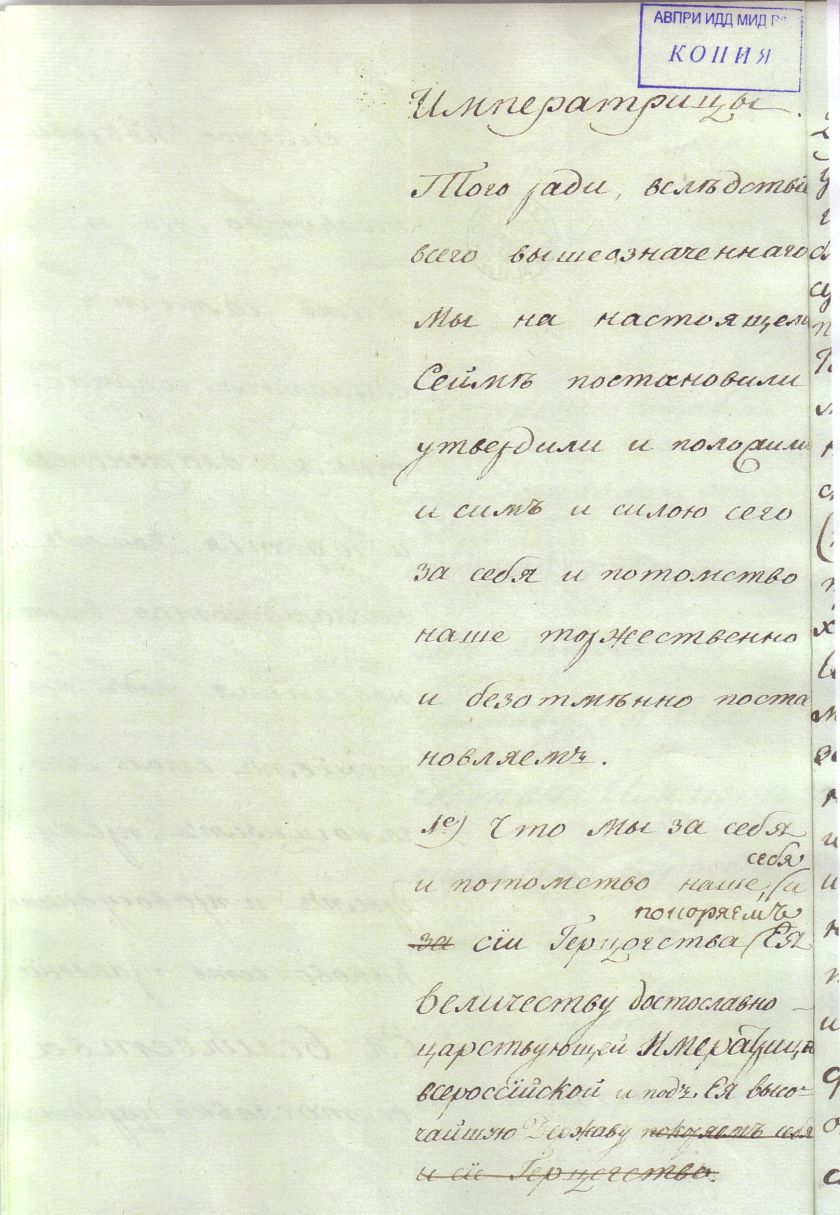 АВПРИ ИДД МИД РФ
КОПИЯ
Императрицы.
Того ради, вслѣдствій
всего вышеозначеннаго
Мы на настоящемъ
Сеймѣ постановили
утвердили и положили
и симъ и силою сего
за себя и потомство
наше торжественно
и безотмѣнно поста
новляемъ.
1е) Что Мы за себя
себя
и потомство наше, (и
покоряемъ
за сіи Герцогства (Ея
Величеству достославно
царствующей Императрицѣ
всероссійской и подъ Ея высо=
чайшую Державу покоряемъ себя
и сіе Герцогство.